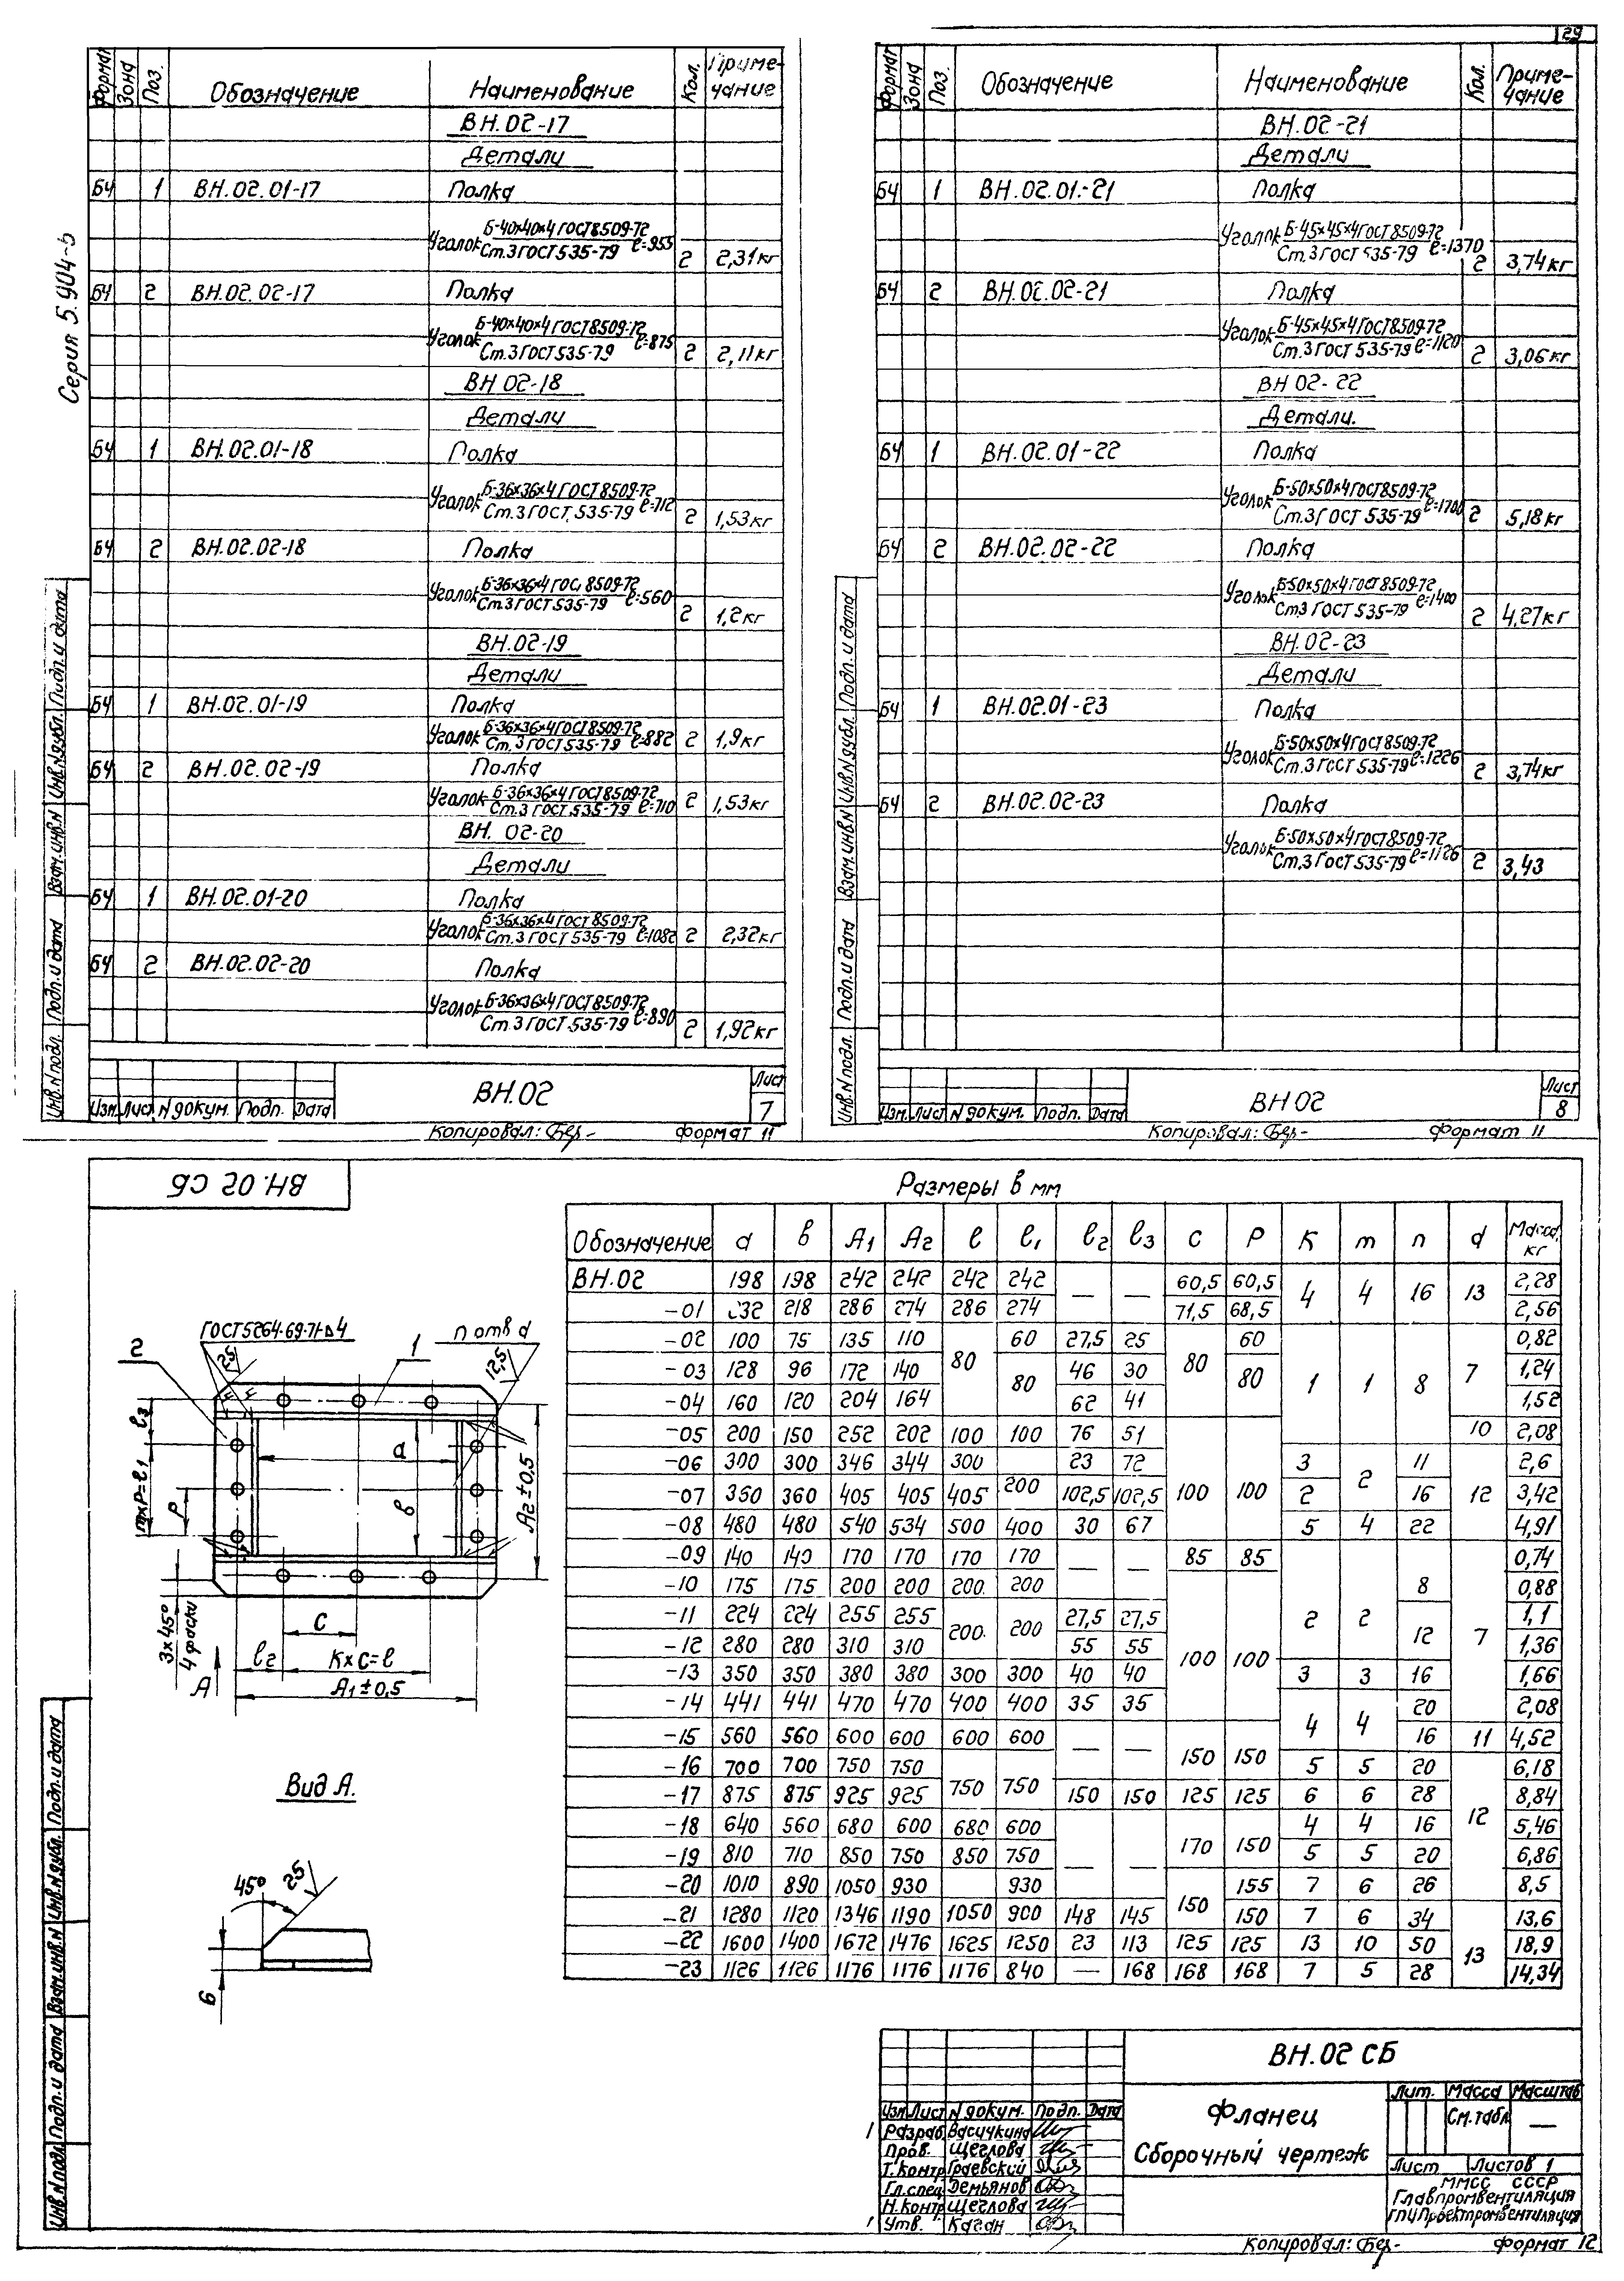 29
Серия 5.904-5
Формат Зона Поз. Обозначение Наименование Кол. Примечание
ВН.02-17
Детали
БЧ 1 ВН.02.01-17 Полка
Уголок Б-40х40х4 ГОСТ 8509-72 / Ст.3 ГОСТ 535-79 ℓ=955 2 2,31кг
БЧ 2 ВН.02.02-17 Полка
Уголок Б-40х40х4 ГОСТ 8509-72 / Ст.3 ГОСТ 535-79 ℓ=875 2 2,11кг
ВН 02-18
Детали
БЧ 1 ВН.02.01-18 Полка
Уголок Б-36х36х4 ГОСТ 8509-72 / Ст.3 ГОСТ 535-79 ℓ=712 2 1,53кг
БЧ 2 ВН.02.02-18 Полка
Уголок Б-36х36х4 ГОСТ 8509-72 / Ст.3 ГОСТ 535-79 ℓ=560 2 1,2кг
ВН.02-19
Детали
БЧ 1 ВН.02.01-19 Полка
Уголок Б-36х36х4 ГОСТ 8509-72 / Ст.3 ГОСТ 535-79 ℓ=882 2 1,9кг
БЧ 2 ВН.02.02-19 Полка
Уголок Б-36х36х4 ГОСТ 8509-72 / Ст.3 ГОСТ 535-79 ℓ=710 2 1,53кг
ВН. 02-20
Детали
БЧ 1 ВН.02.01-20 Полка
Уголок Б-36х36х4 ГОСТ 8509-72 / Ст.3 ГОСТ 535-79 ℓ=1082 2 2,32кг
БЧ 2 ВН.02.02-20 Полка
Уголок Б-36х36х4 ГОСТ 8509-72 / Ст.3 ГОСТ 535-79 ℓ=890 2 1,92кг
Инв.N подл. Подп.и дата Взам.инв.N Инв.N дубл. Подп.и дата
Изм. Лист N докум. Подп. Дата ВН.02 Лист 7
Копировал: Формат 11
Формат Зона Поз. Обозначение Наименование Кол. Примечание
ВН.02-21
Детали
БЧ 1 ВН.02.01.-21 Полка
Уголок Б-45х45х4 ГОСТ 8509-72 / Ст.3 ГОСТ 535-79 ℓ=1370 2 3,74кг
БЧ 2 ВН.02.02-21 Полка
Уголок Б-45х45х4 ГОСТ 8509-72 / Ст.3 ГОСТ 535-79 ℓ=1120 2 3,06кг
ВН 02-22
Детали.
БЧ 1 ВН.02.01-22 Полка
Уголок Б-50х50х4 ГОСТ 8509-72 / Ст.3 ГОСТ 535-79 ℓ=1700 2 5,18кг
БЧ 2 ВН.02.02-22 Полка
Уголок Б-50х50х4 ГОСТ 8509-72 / Ст.3 ГОСТ 535-79 ℓ=1400 2 4,27кг
ВН.02-23
Детали
БЧ 1 ВН.02.01-23 Полка
Уголок Б-50х50х4 ГОСТ 8509-72 / Ст.3 ГОСТ 535-79 ℓ=1226 2 3,74кг
БЧ 2 ВН.02.02-23 Полка
Уголок Б-50х50х4 ГОСТ 8509-72 / Ст.3 ГОСТ 535-79 ℓ=1126 2 3,43
Инв.N подл. Подп.и дата Взам.инв.N Инв.N дубл. Подп.и дата
Изм. Лист N докум. Подп. Дата ВН 02 Лист 8
Копировал: Формат 11
ВН.02 СБ
ГОСТ 5264-69-Т1-⊿4
n отв d
2 25 1 12,5
ℓ3 m×P=ℓ1 P a в А2±0,5
3×45° 4 фаски
C ℓ2 К×С=ℓ А1±0,5
А
Вид А.
45° 25
6
Размеры в мм
Обозначение a в А1 А2 ℓ ℓ1 ℓ2 ℓ3 C P K m n d Масса, кг
ВН.02 198 198 242 242 242 242 — — 60,5 60,5 4 4 16 13 2,28
-01 232 218 286 274 286 274 71,5 68,5 2,56
-02 100 75 135 110 80 60 27,5 25 80 60 1 1 8 7 0,82
-03 128 96 172 140 80 46 30 80 1,24
-04 160 120 204 164 62 41 1,52
-05 200 150 252 202 100 100 76 51 100 100 10 2,08
-06 300 300 346 344 300 200 23 72 3 2 11 12 2,6
-07 360 360 405 405 405 102,5 102,5 2 16 3,42
-08 480 480 540 534 500 400 30 67 5 4 22 4,91
-09 140 140 170 170 170 170 — — 85 85 2 2 8 7 0,74
-10 175 175 200 200 200 200 100 100 0,88
-11 224 224 255 255 200 200 27,5 27,5 12 1,1
-12 280 280 310 310 55 55 1,36
-13 350 350 380 380 300 300 40 40 3 3 16 1,66
-14 441 441 470 470 400 400 35 35 4 4 20 2,08
-15 560 560 600 600 600 600 — — 150 150 16 11 4,52
-16 700 700 750 750 750 750 5 5 20 12 6,18
-17 875 875 925 925 150 150 125 125 6 6 28 8,84
-18 640 560 680 600 680 600 — — 170 150 4 4 16 5,46
-19 810 710 850 750 850 750 5 5 20 6,86
-20 1010 890 1050 930 930 150 155 7 6 26 8,5
-21 1280 1120 1346 1190 1050 900 148 145 150 7 6 34 13 13,6
-22 1600 1400 1672 1476 1625 1250 23 113 125 125 13 10 50 18,9
-23 1126 1126 1176 1176 1176 840 — 168 168 168 7 5 28 14,34
Инв.N подл. Подп.и дата Взам.инв.N Инв.N дубл. Подп.и дата
ВН.02 СБ
Изм. Лист N докум. Подп. Дата
Разраб. Васичкина
Пров. Щеглова
Т.контр. Граевский
Гл.спец. Демьянов
Н.контр. Щеглова
Утв. Каган
Фланец
Сборочный чертеж
Лит. Масса Масштаб
См.табл. —
Лист Листов 1
ММСС СССР
Главпромвентиляция
ГПИ Проектпромвентиляция
Копировал: Формат 12